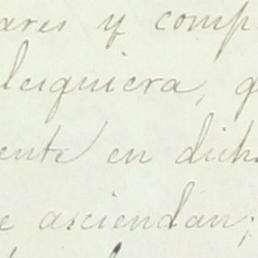 ares y comp
lesquiera, q
ente en dich
e asciendan;